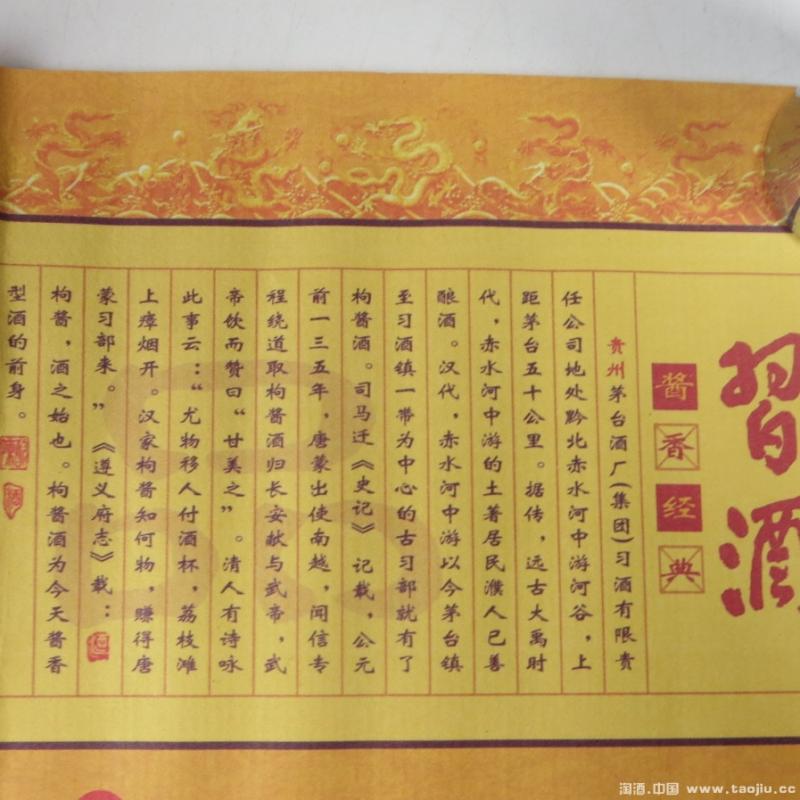 習酒
酱香经典
贵州茅台酒厂(集团)习酒有限责
任公司地处黔北赤水河中游河谷,上
距茅台五十公里。据传,远古大禹时
代,赤水河中游的土著居民濮人已善
酿酒。汉代,赤水河中游以今茅台镇
至习酒镇一带为中心的古习部就有了
枸酱酒。司马迁《史记》记载,公元
前一三五年,唐蒙出使南越,闻信专
程绕道取枸酱酒归长安献与武帝,武
帝饮而赞曰“甘美之”。清人有诗咏
此事云:“尤物移人付酒杯,荔枝滩
上瘴烟开。汉家枸酱知何物,赚得唐
蒙习部来。”《遵义府志》载:
枸酱,酒之始也。枸酱酒为今天酱香
型酒的前身。
淘酒.中国 www.taojiu.cc